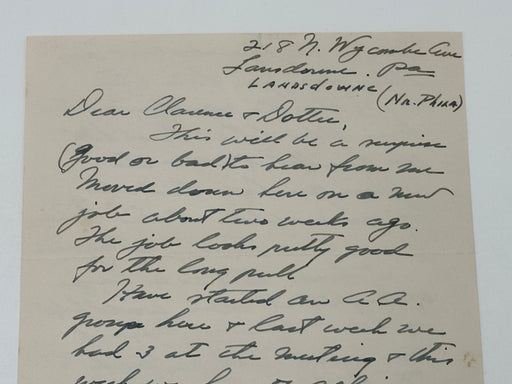 218 N. Wycombe Ave
Lansdowne. Pa
LANDSDOWNE (NR. PHILA)
Dear Clarence & Dottie,
This will be a surprise
(good or bad) to hear from me
Moved down here on a new
job about two weeks ago.
The job looks pretty good
for the long pull
Have started an A.A.
group here & last week we
had 3 at the meeting & this
week we